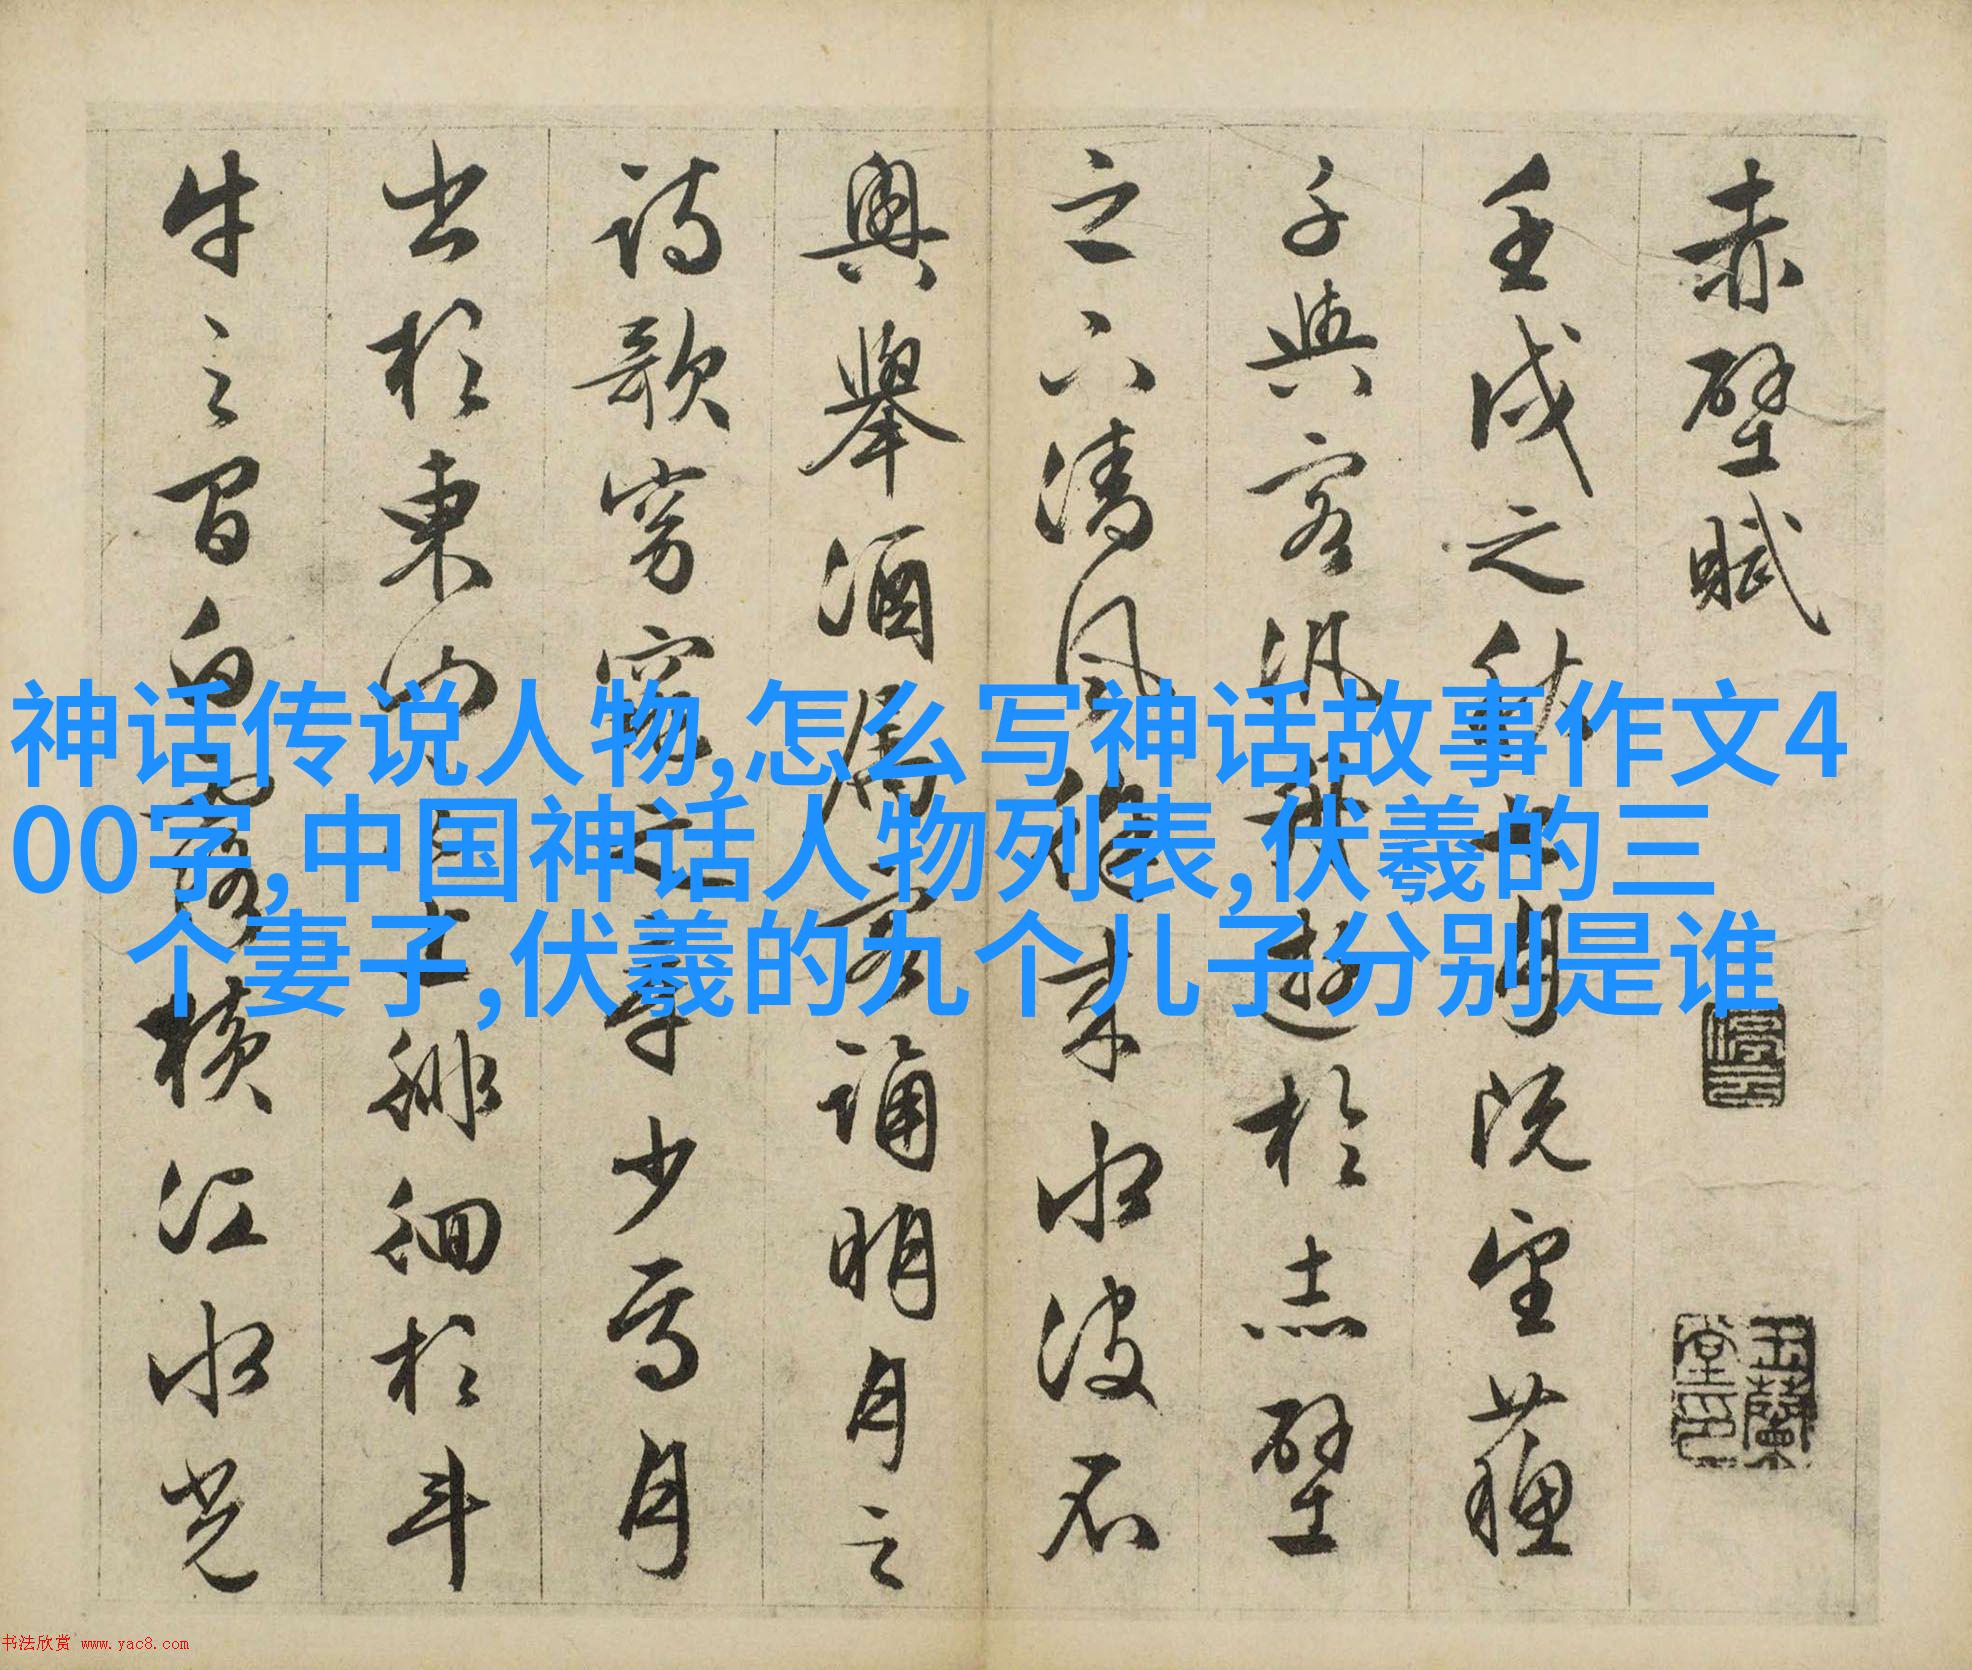 赤壁賦
壬戌之秋七月既望蘇
子與客汎舟遊於赤壁
之下清風徐來水波不
興舉酒屬客誦明月之
詩歌窈窕之章少焉月
出於東山之上徘徊於斗
牛之間白露橫江水光
神话传说人物,怎么写神话故事作文4
00字,中国神话人物列表,伏羲的三
个妻子,伏羲的九个儿子分别是谁
停雲
玉蘭堂印
书法欣赏 www.yac8.com